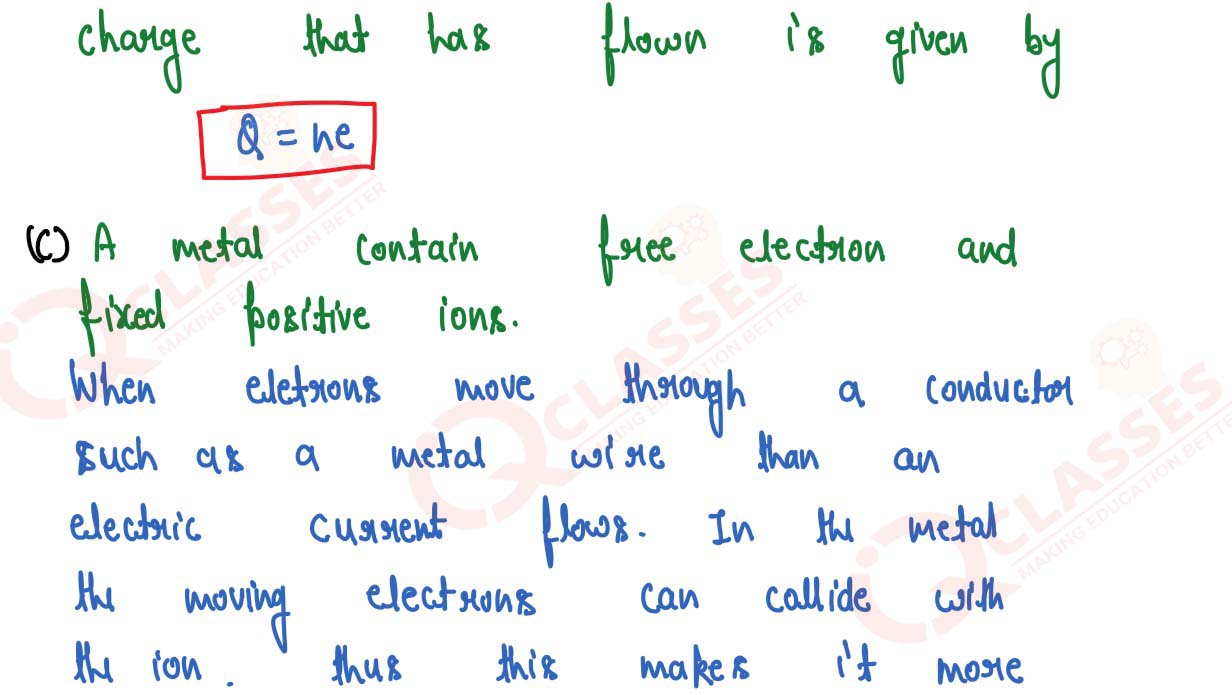 charge that has flown is given by
Q = ne
(C) A metal contain free electron and
fixed positive ions.
When eletrons move through a conductor
such as a metal wire than an
electric current flows. In the metal
the moving electrons can collide with
the ion. thus this makes it more
iQ CLASSES
MAKING EDUCATION BETTER
iQ CLASSES
MAKING EDUCATION BETTER
iQ CLASSES
MAKING EDUCATION BETTER